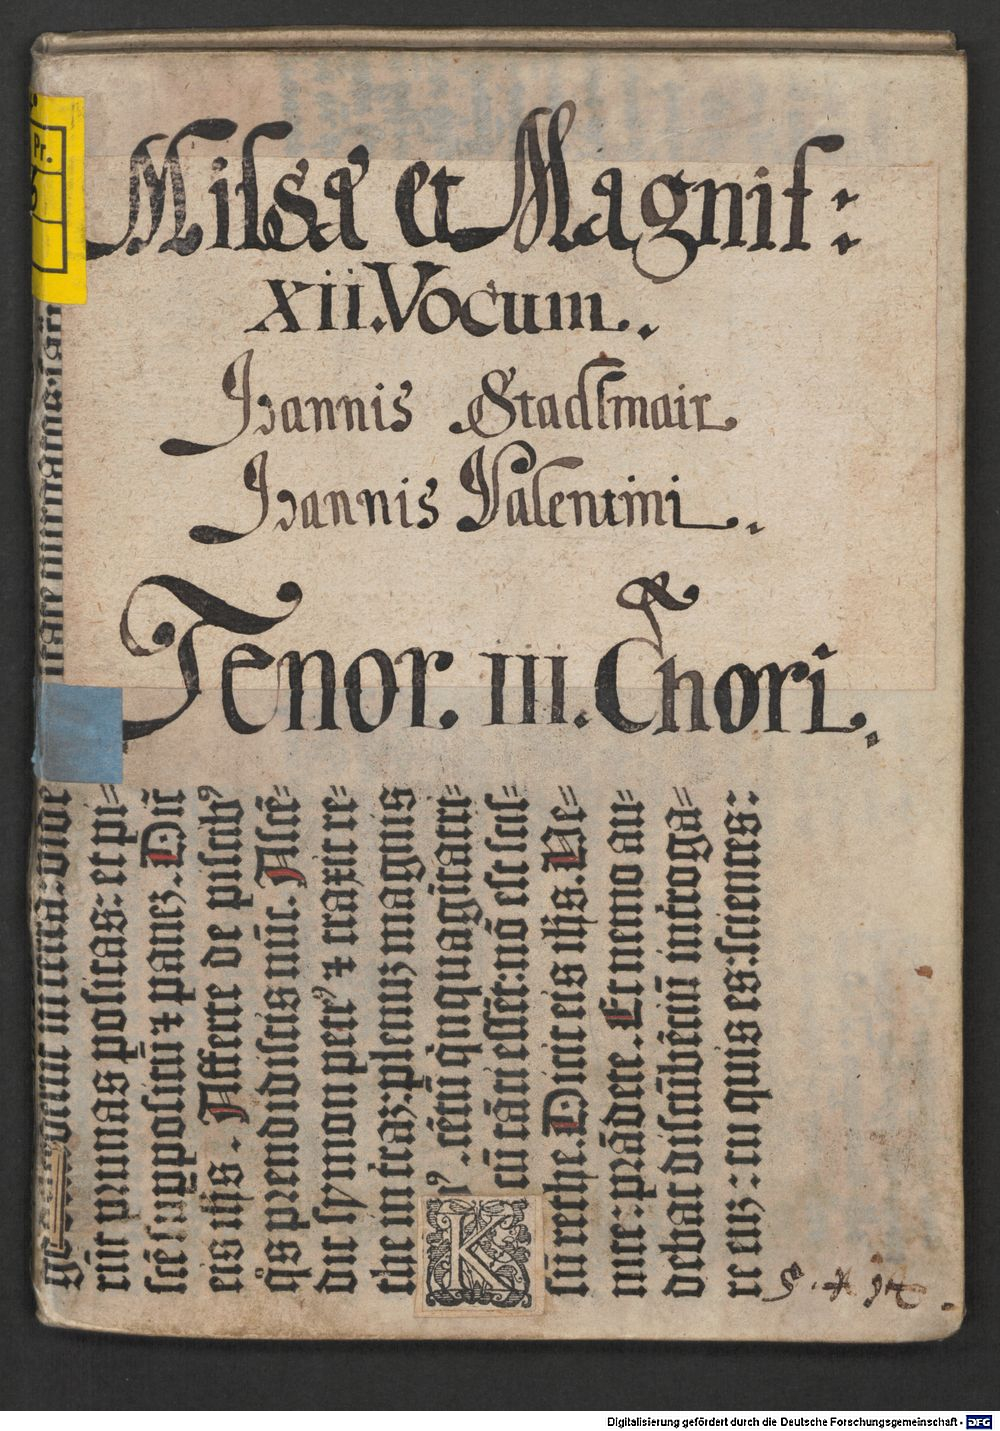 Pr.
Missæ et Magnif:
xii. Vocum.
Ioannis Stadlmair
Ioannis Valentini.
Tenor. iii. Chori.
rūt prunas positas: et pi=
scē suppositū ⁊ panez. Dn̄s
eis ihs. Afferte de piscibꝰ
q̊s prendidistis nūc. Ascē=
dit symon petrꝰ ⁊ traxit re=
the in traz: plenuz magnis
.cētū q̇nquagītatri=
cū tāti essēt: nō est scis=
sū rethe. Dicit eis ihs. Ve=
nite: prādete. Et nemo au=
debat discūbētiū introga=
re euz: tu quis es: scientes:
K
Digitalisierung gefördert durch die Deutsche Forschungsgemeinschaft - DFG